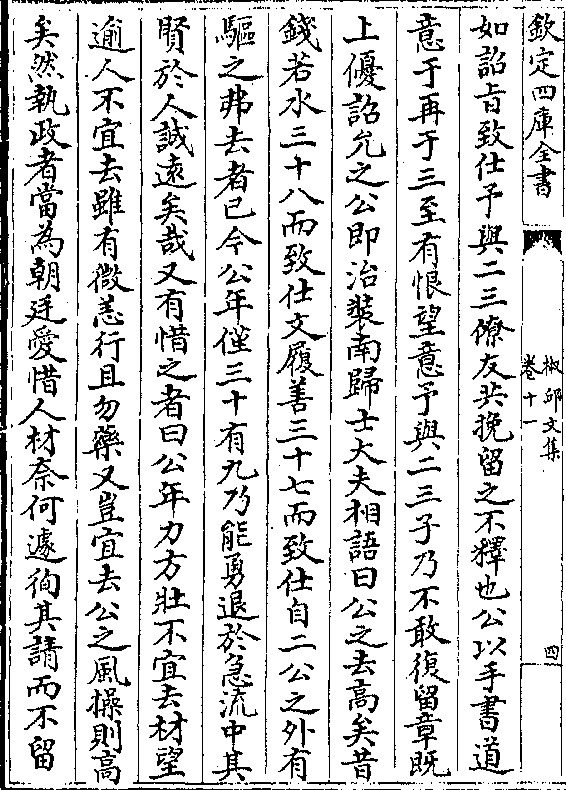 欽定四庫全書
椒邱文集
卷十一
四
如詔旨致仕予與二三僚友共挽留之不釋也公以手書道
意于再于三至有恨望意予與二三子乃不敢復留章既
上優詔允之公即治裝南歸士大夫相語曰公之去高矣昔
錢若水三十八而致仕文履善三十七而致仕自二公之外有
驅之弗去者已今公年僅三十有九乃能勇退於急流中其
賢於人誠遠矣哉又有惜之者曰公年力方壯不宜去材望
逾人不宜去雖有微恙行且勿藥又豈宜去公之風操則高
矣然執政者當為朝廷愛惜人材奈何遽徇其請而不留